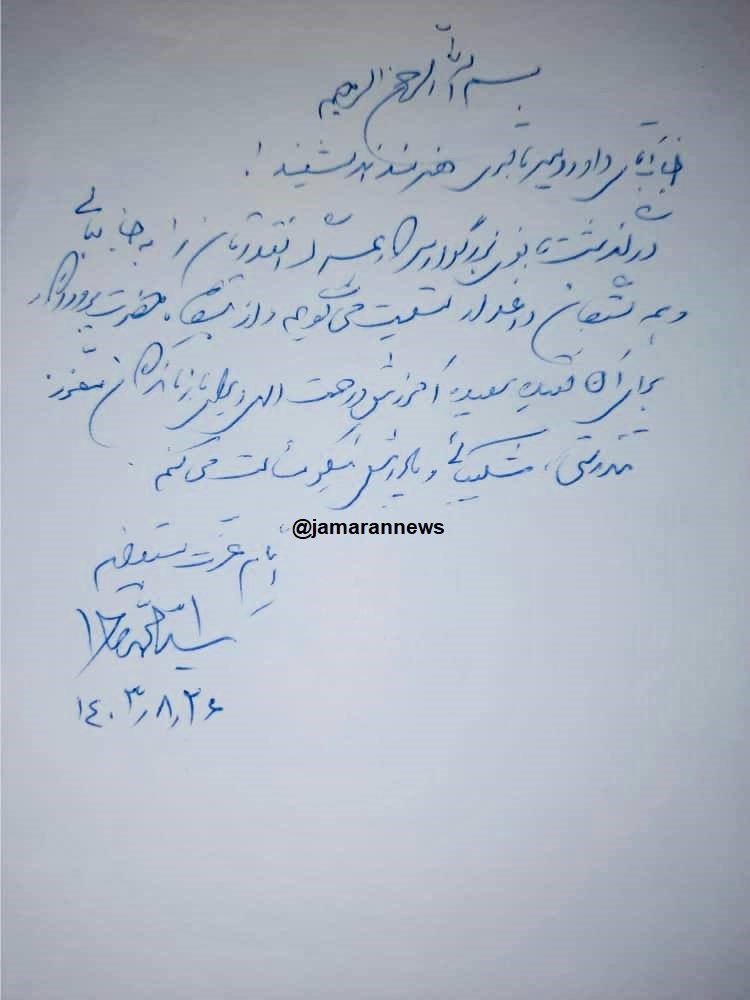 بسم الله الرحمن الرحیم
جناب آقای داود میرباقری هنرمند اندیشمند!
درگذشت بانوی بزرگوار سرکار همسر گرانقدرتان را به جنابعالی
و همه بستگان داغدار تسلیت می‌گویم و از پیشگاه حضرت پروردگار
برای آن فقیده سعیده آمرزش و رحمت الهی و برای بازماندگان معزز
تندرستی، شکیبائی و پاداش نیکو مسألت می‌کنم.
@jamarannews
ایام عزت مستدام
سید محمد خاتمی
۱۴۰۳٫۸٫۲۶